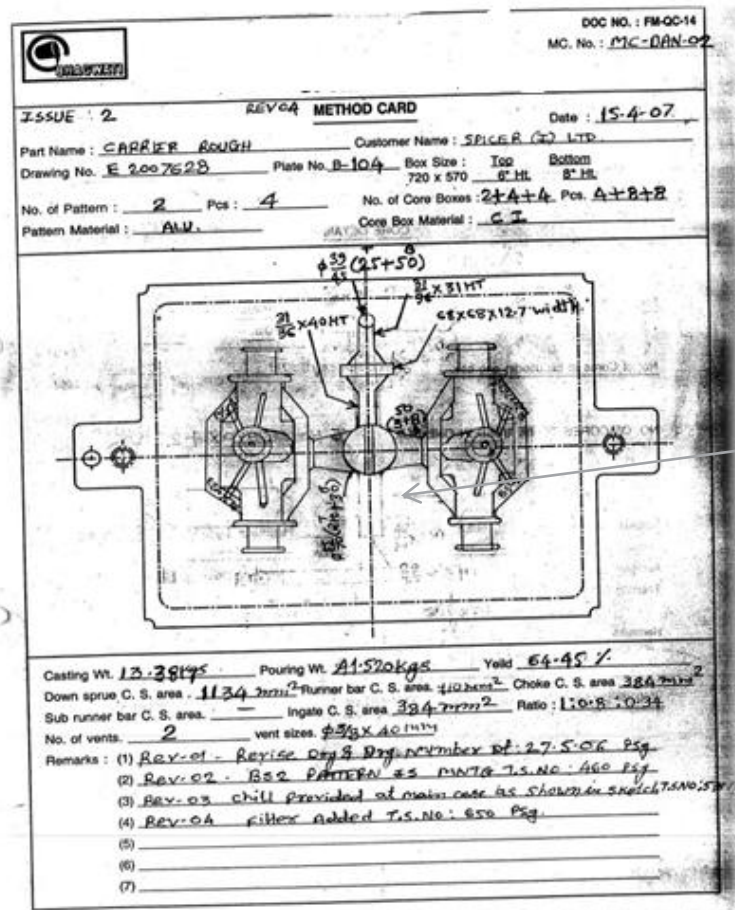 DOC NO. : FM-QC-14
MC. No. : MC-DAN-02
BHAGWATI
ISSUE : 2 REV04 METHOD CARD Date : 15-4-07
Part Name : CARRIER ROUGH Customer Name : SPICER (I) LTD.
Drawing No. E 2007628 Plate No. B-104 Box Size : Top Bottom
720 x 570 6" Ht. 8" Ht.
No. of Pattern : 2 Pcs : 4 No. of Core Boxes : 2+4+4 Pcs. 4+8+8
Pattern Material : ALU. Core Box Material : C I
T B
(25+50)
x31HT
x40HT
68x68x12.7 width
50
Casting Wt. 13.38kgs Pouring Wt. 41.520kgs Yeild 64.45 %
Down sprue C. S. area . 1134 mm² Runner bar C. S. area. mm² Choke C. S. area 384 mm²
Sub runner bar C. S. area. — Ingate C. S. area 384 mm² Ratio : 1:0.8:0.34
No. of vents. 2 vent sizes. x 40 mm
Remarks : (1) Rev-01 - Revise Drg & Drg. Number Dt: 27.5.06 Psg
(2) Rev-02 - PATTERN T.S.NO: 460 Psg
(3) Rev-03 chill provided at main core as shown in sketch T.S.NO:
(4) Rev-04 Filter Added T.S.No: 650 Psg.
(5)
(6)
(7)